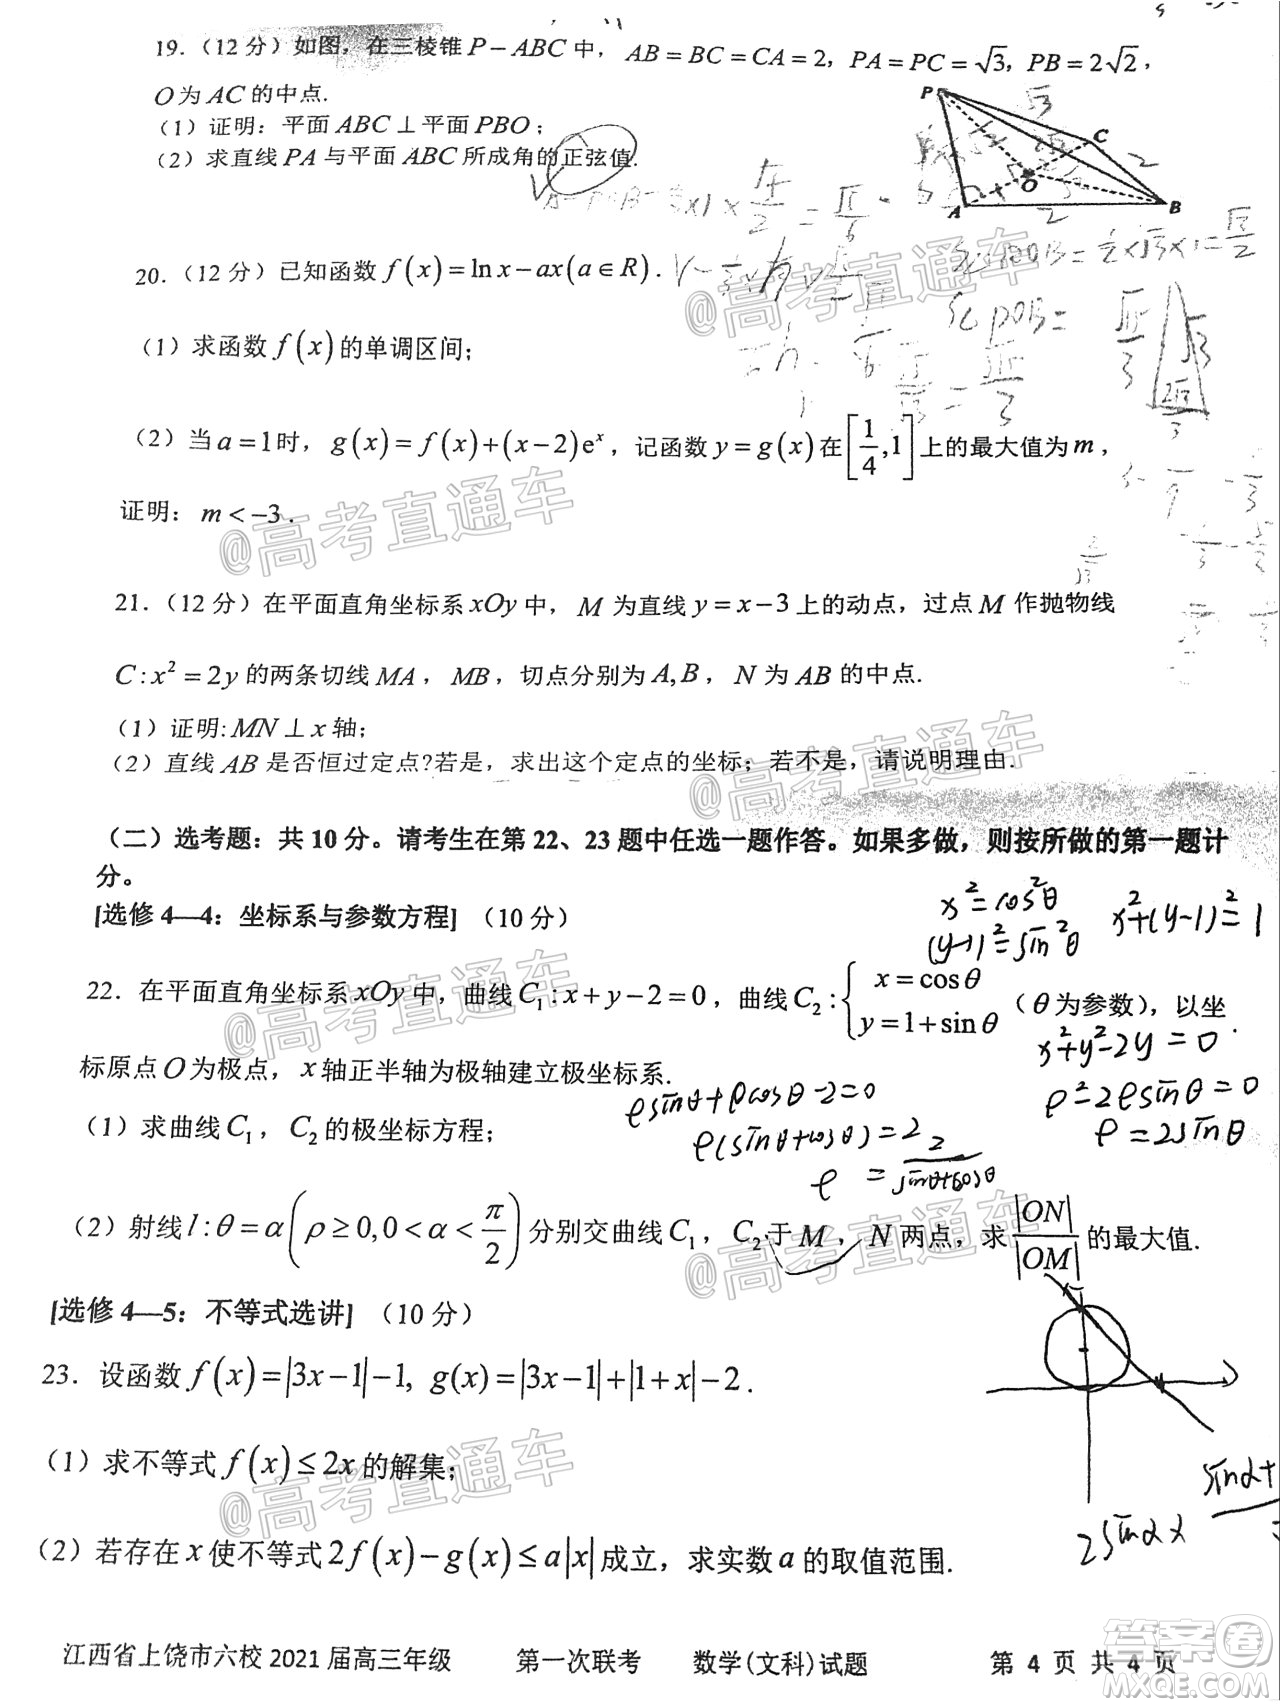 19.（12 分）如图，在三棱锥 P－ABC 中，AB＝BC＝CA＝2，PA＝PC＝√3，PB＝2√2，
O 为 AC 的中点.
（1）证明：平面 ABC⊥平面 PBO；
（2）求直线 PA 与平面 ABC 所成角的正弦值.
P
C
O
A
B
20.（12 分）已知函数 f(x)＝ln x－ax(a∈R).
（1）求函数 f(x) 的单调区间；
（2）当 a＝1时，g(x)＝f(x)+(x－2)eˣ，记函数 y＝g(x) 在 [1/4,1] 上的最大值为 m，
证明：m＜－3.
21.（12 分）在平面直角坐标系 xOy 中，M 为直线 y＝x－3 上的动点，过点 M 作抛物线
C:x²＝2y 的两条切线 MA，MB，切点分别为 A,B，N 为 AB 的中点.
（1）证明:MN⊥x 轴；
（2）直线 AB 是否恒过定点?若是，求出这个定点的坐标；若不是，请说明理由.
（二）选考题：共 10 分。请考生在第 22、23 题中任选一题作答。如果多做，则按所做的第一题计
分。
[选修 4—4：坐标系与参数方程]（10 分）
x²=cos²θ
(y-1)²=sin²θ
x²+(y-1)²=1
22．在平面直角坐标系 xOy 中，曲线 C₁:x+y－2＝0，曲线 C₂:{x＝cosθ y＝1+sinθ（θ 为参数），以坐
标原点 O 为极点，x 轴正半轴为极轴建立极坐标系.
x²+y²-2y=0
ρ²-2ρsinθ=0
ρ=2sinθ
（1）求曲线 C₁，C₂ 的极坐标方程；
ρsinθ+ρcosθ-2=0
ρ(sinθ+cosθ)=2
ρ=2/(sinθ+cosθ)
（2）射线 l:θ＝α(ρ≥0,0＜α＜π/2) 分别交曲线 C₁，C₂ 于 M，N 两点，求 |ON|/|OM| 的最大值.
[选修 4—5：不等式选讲]（10 分）
23．设函数 f(x)＝|3x－1|－1, g(x)＝|3x－1|+|1+x|－2.
（1）求不等式 f(x)≤2x 的解集；
（2）若存在 x 使不等式 2f(x)－g(x)≤a|x| 成立，求实数 a 的取值范围.
2sinα×
sinα+
江西省上饶市六校 2021 届高三年级 第一次联考 数学(文科)试题 第 4 页 共 4 页
@高考直通车
@高考直通车
@高考直通车
@高考直通车
@高考直通车
@高考直通车
答案卷
MXQE.COM